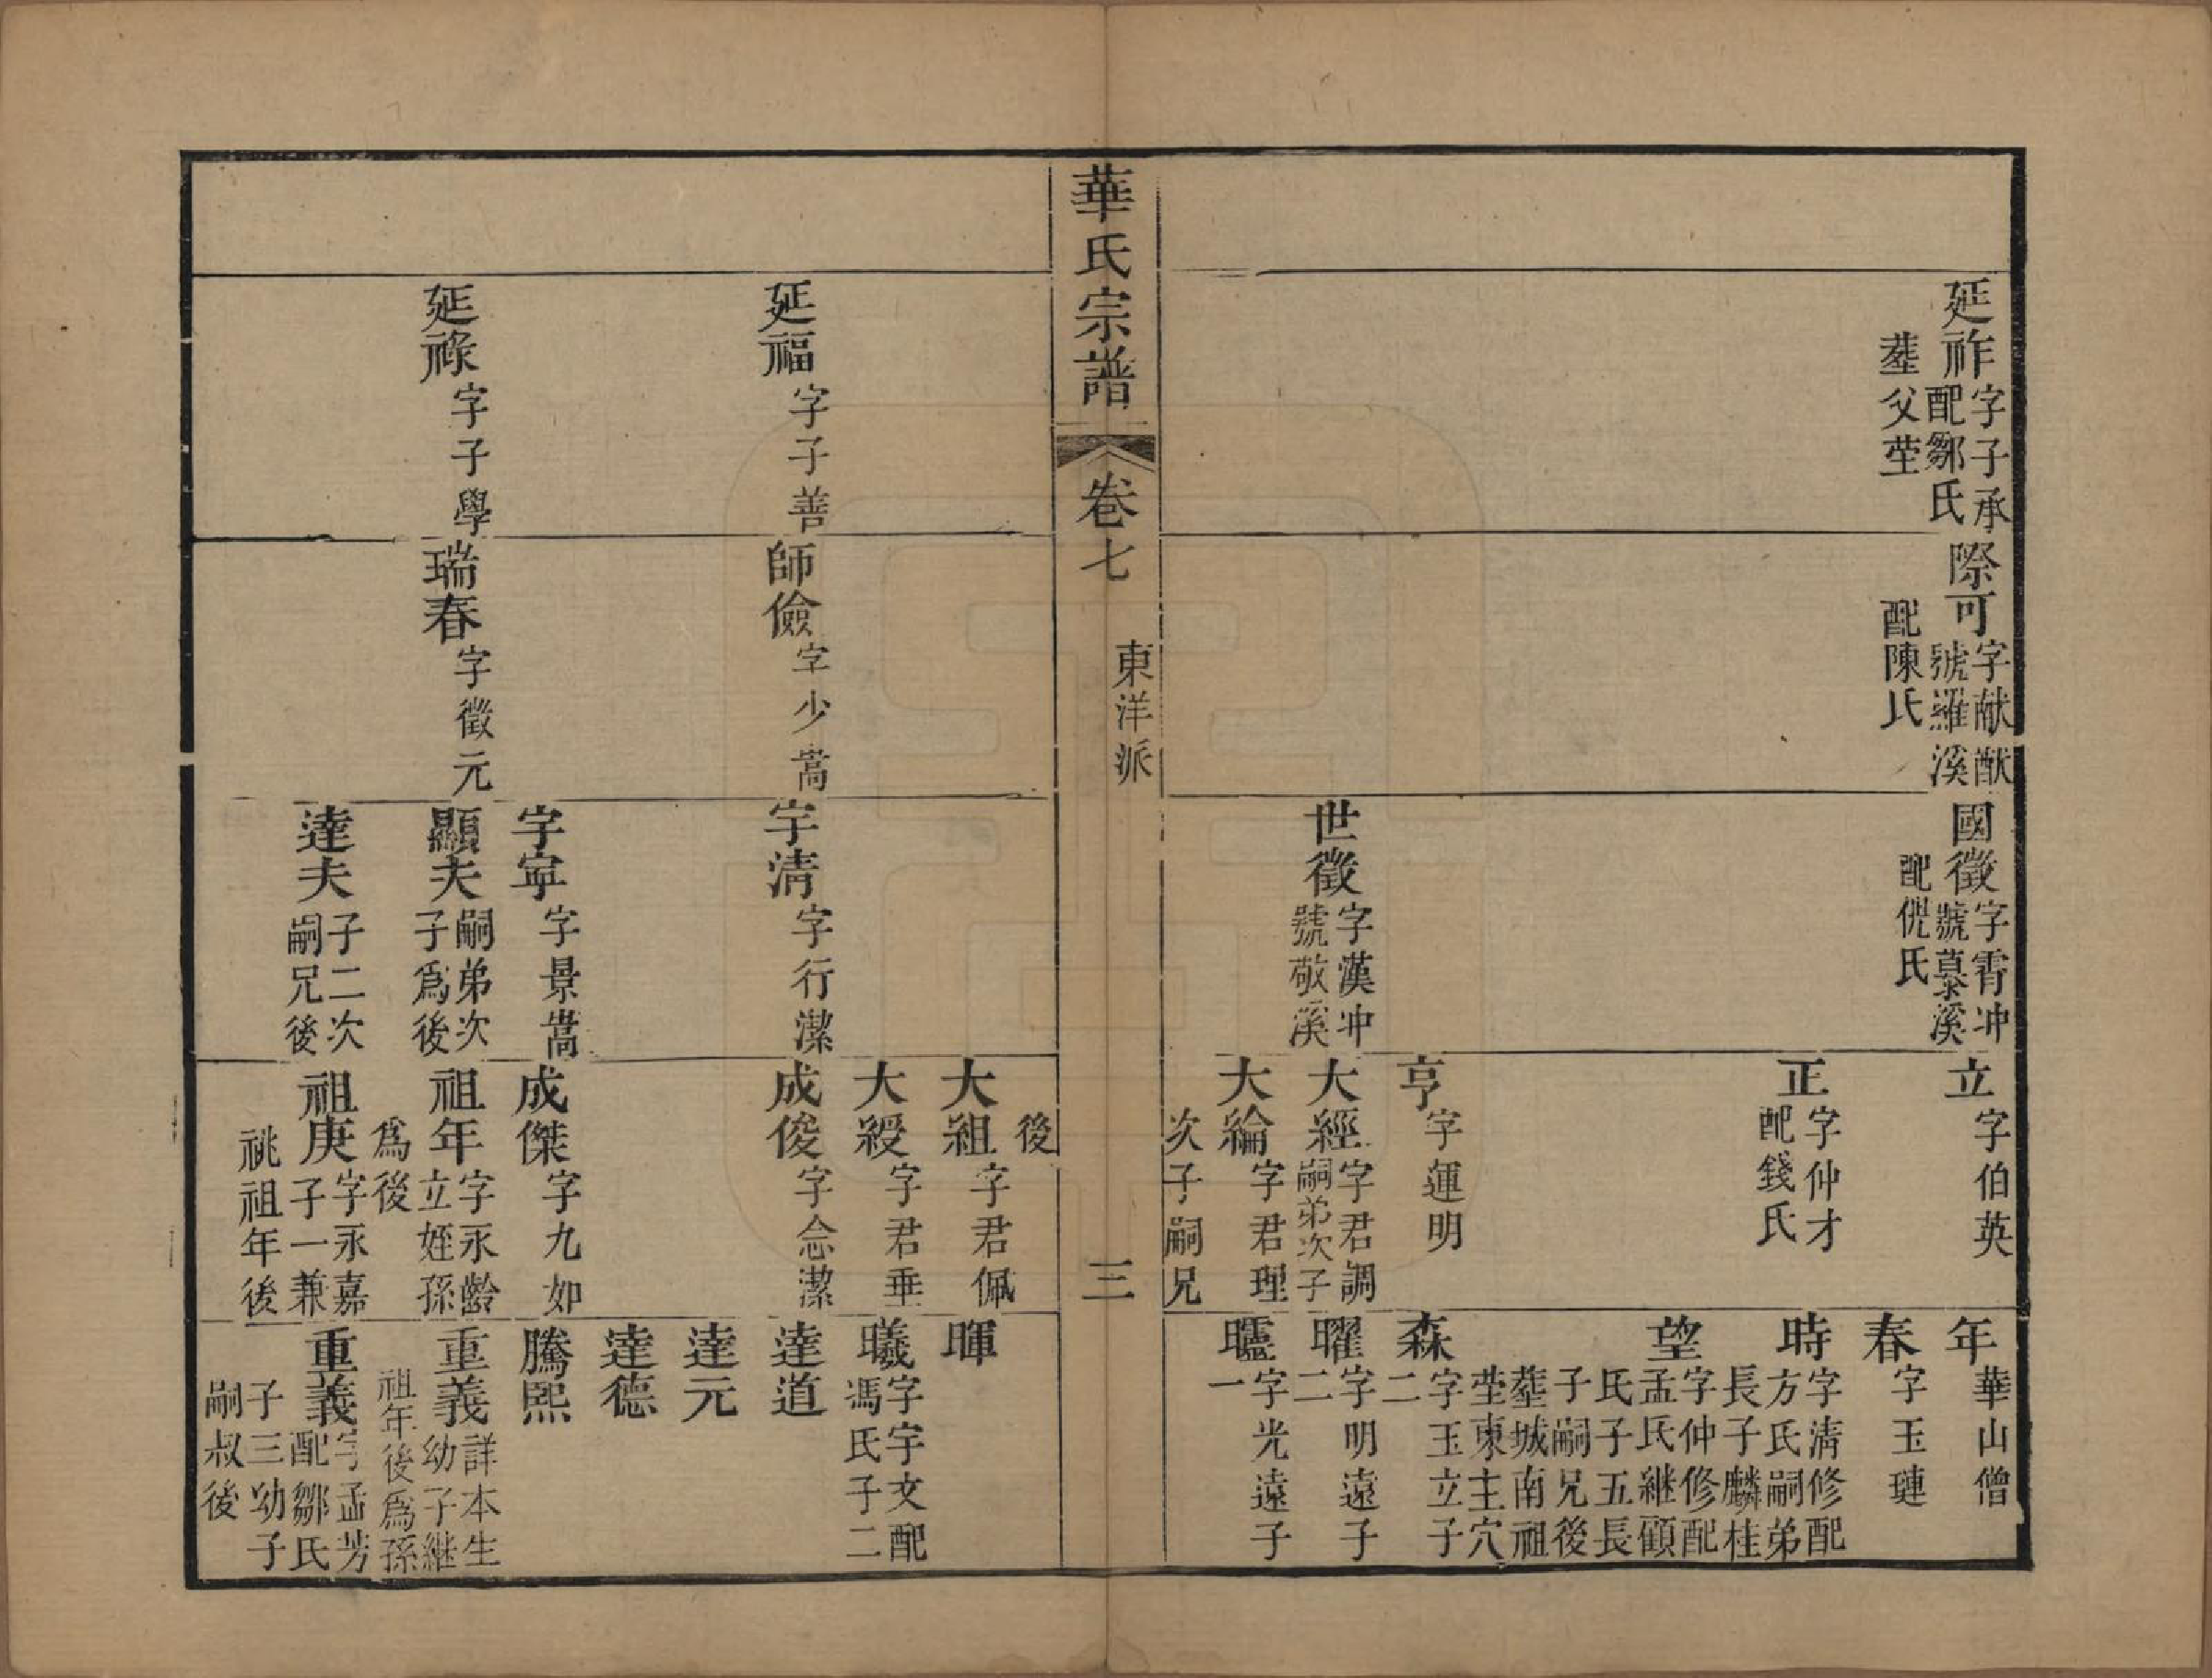 延祚
字子承
配鄒氏
塟父塋
際可
字献猷
號羅溪
配陳氏
國徵
字霄冲
號慕溪
配倪氏
世徵
字漢冲
號敬溪
立
字伯英
正
字仲才
配錢氏
亨
字運明
大經
字君調
嗣弟次子
大綸
字君理
次子嗣兄
年
華山僧
春
字玉璉
時
字清修配
方氏嗣弟
長子麟桂
望
字仲修配
孟氏継顧
氏子五長
子嗣兄後
塟城南祖
塋東主穴
森
字玉立子
二
曜
字明遠子
二
矑
字光遠子
一
華氏宗譜
卷七
東洋派
三
延福
字子善
延祿
字子學
師儉
字少嵩
瑞春
字徵元
宇清
字行潔
宇寕
字景嵩
顯夫
嗣弟次
子爲後
達夫
子二次
嗣兄後
後
大組
字君佩
大綬
字君垂
成俊
字念潔
成傑
字九如
祖年
字永齡
立姪孫
爲後
祖庚
字永嘉
子一兼
祧祖年後
暉
曦
字宇文配
馮氏子二
達道
達元
達德
騰熙
重義
詳本生
幼子継
祖年後爲孫
重義
字孟芳
配鄒氏
子三幼子
嗣叔後